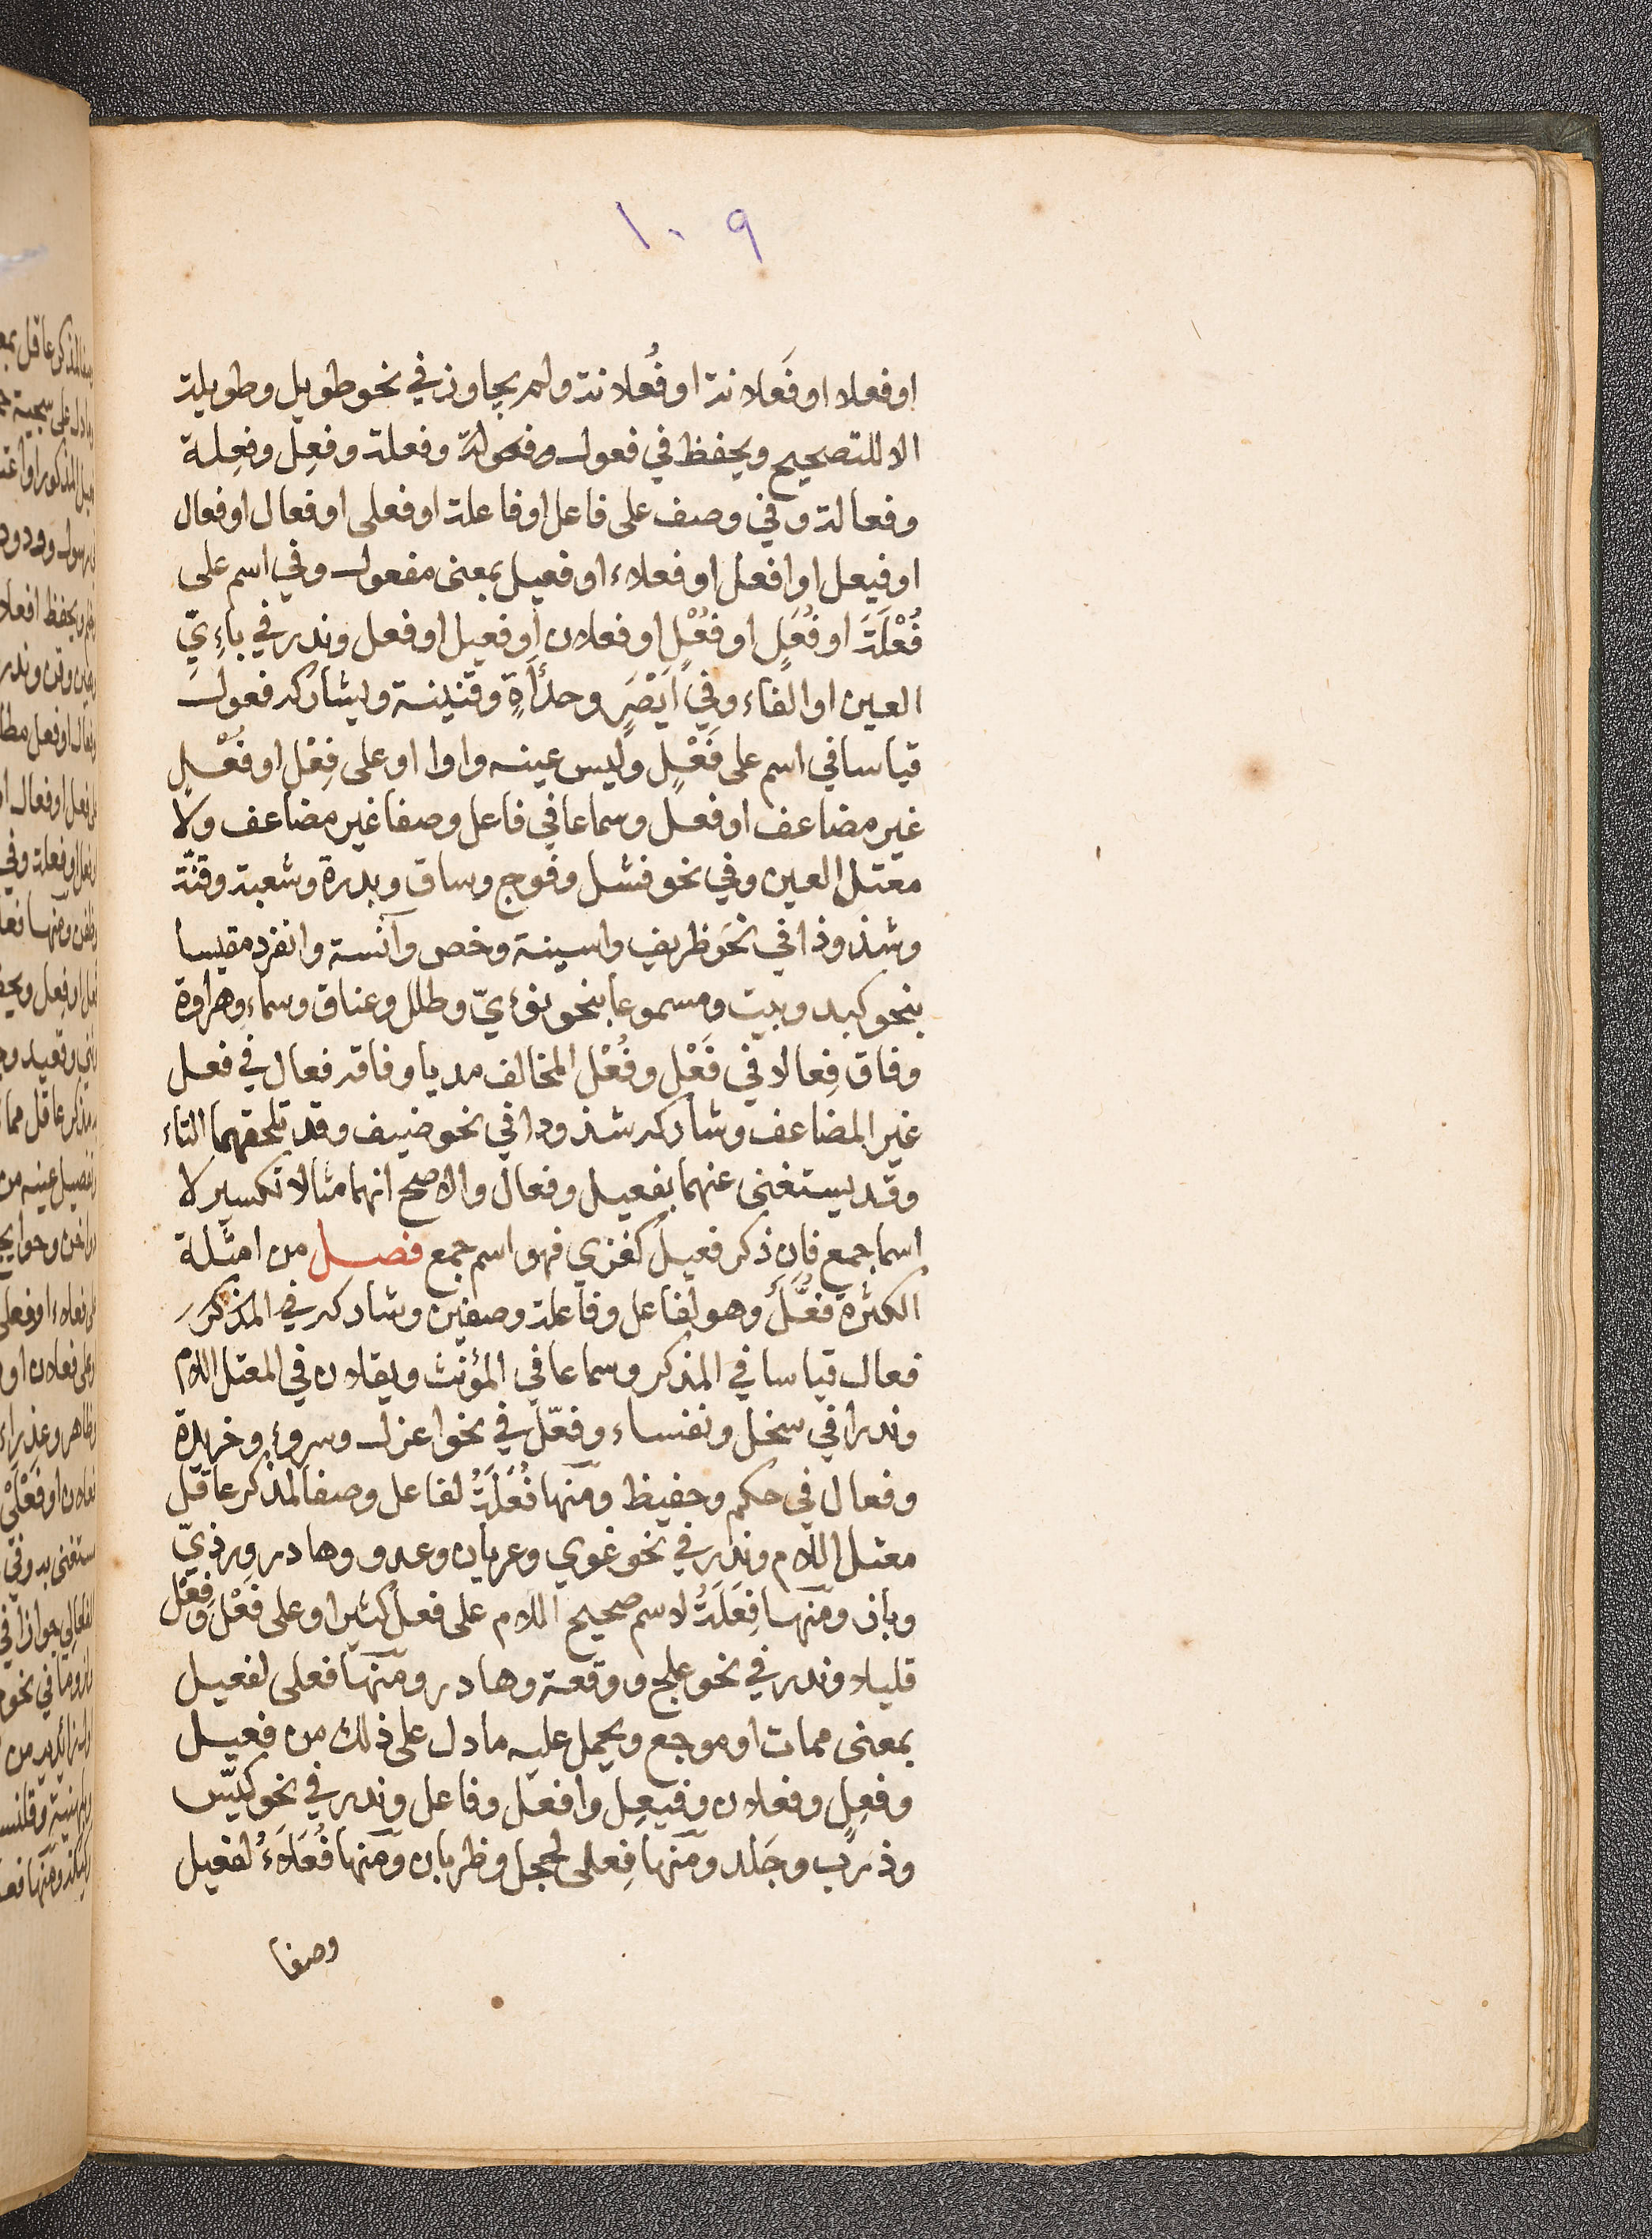 ١٠٩
او فعلا او فَعلانة او فُعلانة ولم يجاوز في نحو طويل وطويلة
الا للتصحيح ويحفظ في فعول وفعولة وفعلة وفعِل وفعِلة
وفعالة وفي وصف على فاعل او فاعلة او فعلى او فعال او فعال
او فيعل او افعل او فعلاء او فعيل بمعنى مفعول وفي اسم على
فُعْلَة او فُعَلٍ او فُعْلٍ او فعلان او فعيل او فعل وندر في ياءِيّ
العين او الفاء وفي ايْصَرٍ وحدأَةٍ وقنينة ويشاركه فعول
قياسا في اسم على فَعْلٍ وليس عينه واوا او على فِعْل او فُعْلٍ
غير مضاعف او فعل وسماعا في فاعل وصفا غير مضاعف ولا
معتل العين وفي نحو فشل وفوج وساق وبدرة وشعبة وقنّة
وشذوذا في نحو ظريف واسينة وخص وآنسة وانفرد مقيسا
بنحو كبد وبيت ومسموعا بنحو نؤيّ وطلل وعناق وسماءٍ وهراوة
وفاق فِعالا في فَعْل وفُعْل المخالف مديا وفاقه فعال في فعل
غير المضاعف وشاركه شذوذا في نحو ضيف وقد تلحقهما التاء
وقد يستغنى عنهما بفعيل وفعال والاصح انهما مثالا تكسير لا
اسما جمع فان ذكر فعيل كغزي فهو اسم جمع فصل من امثلة
الكثرة فُعَّل وهو لفاعل وفاعلة وصفين وشاركه في المذكر
فعال قياسا في المذكر وسماعا في المؤنث ويقلان في المعتل اللام
وندرا في سخل ونفساء وفعّل في نحو اعزل وسروءٍ وخريدة
وفعال في حكم وحفيظ ومنها فُعَلَةُ لفاعل وصفا لمذكر عاقل
معتل اللام وندر في نحو غوي وعريان وعدو وهادر ورذيّ
وباز ومنها فِعَلَةُ لاسم صحيح اللام على فعل كثيرا وعلى فَعْل وفِعْل
قليلا وندر في نحو علج ووقعة وهادر ومنها فعلى لفعيل
بمعنى ممات او موجع ويحمل عليه ما دل على ذلك من فعيل
وفعِلٍ وفعلان وفيعِل وافعل وفاعل وندر في نحو كيّس
وذرَب وجَلد ومنها فِعلى لحجل وظربان ومنها فُعَلَاءُ لفعيل
وصفا